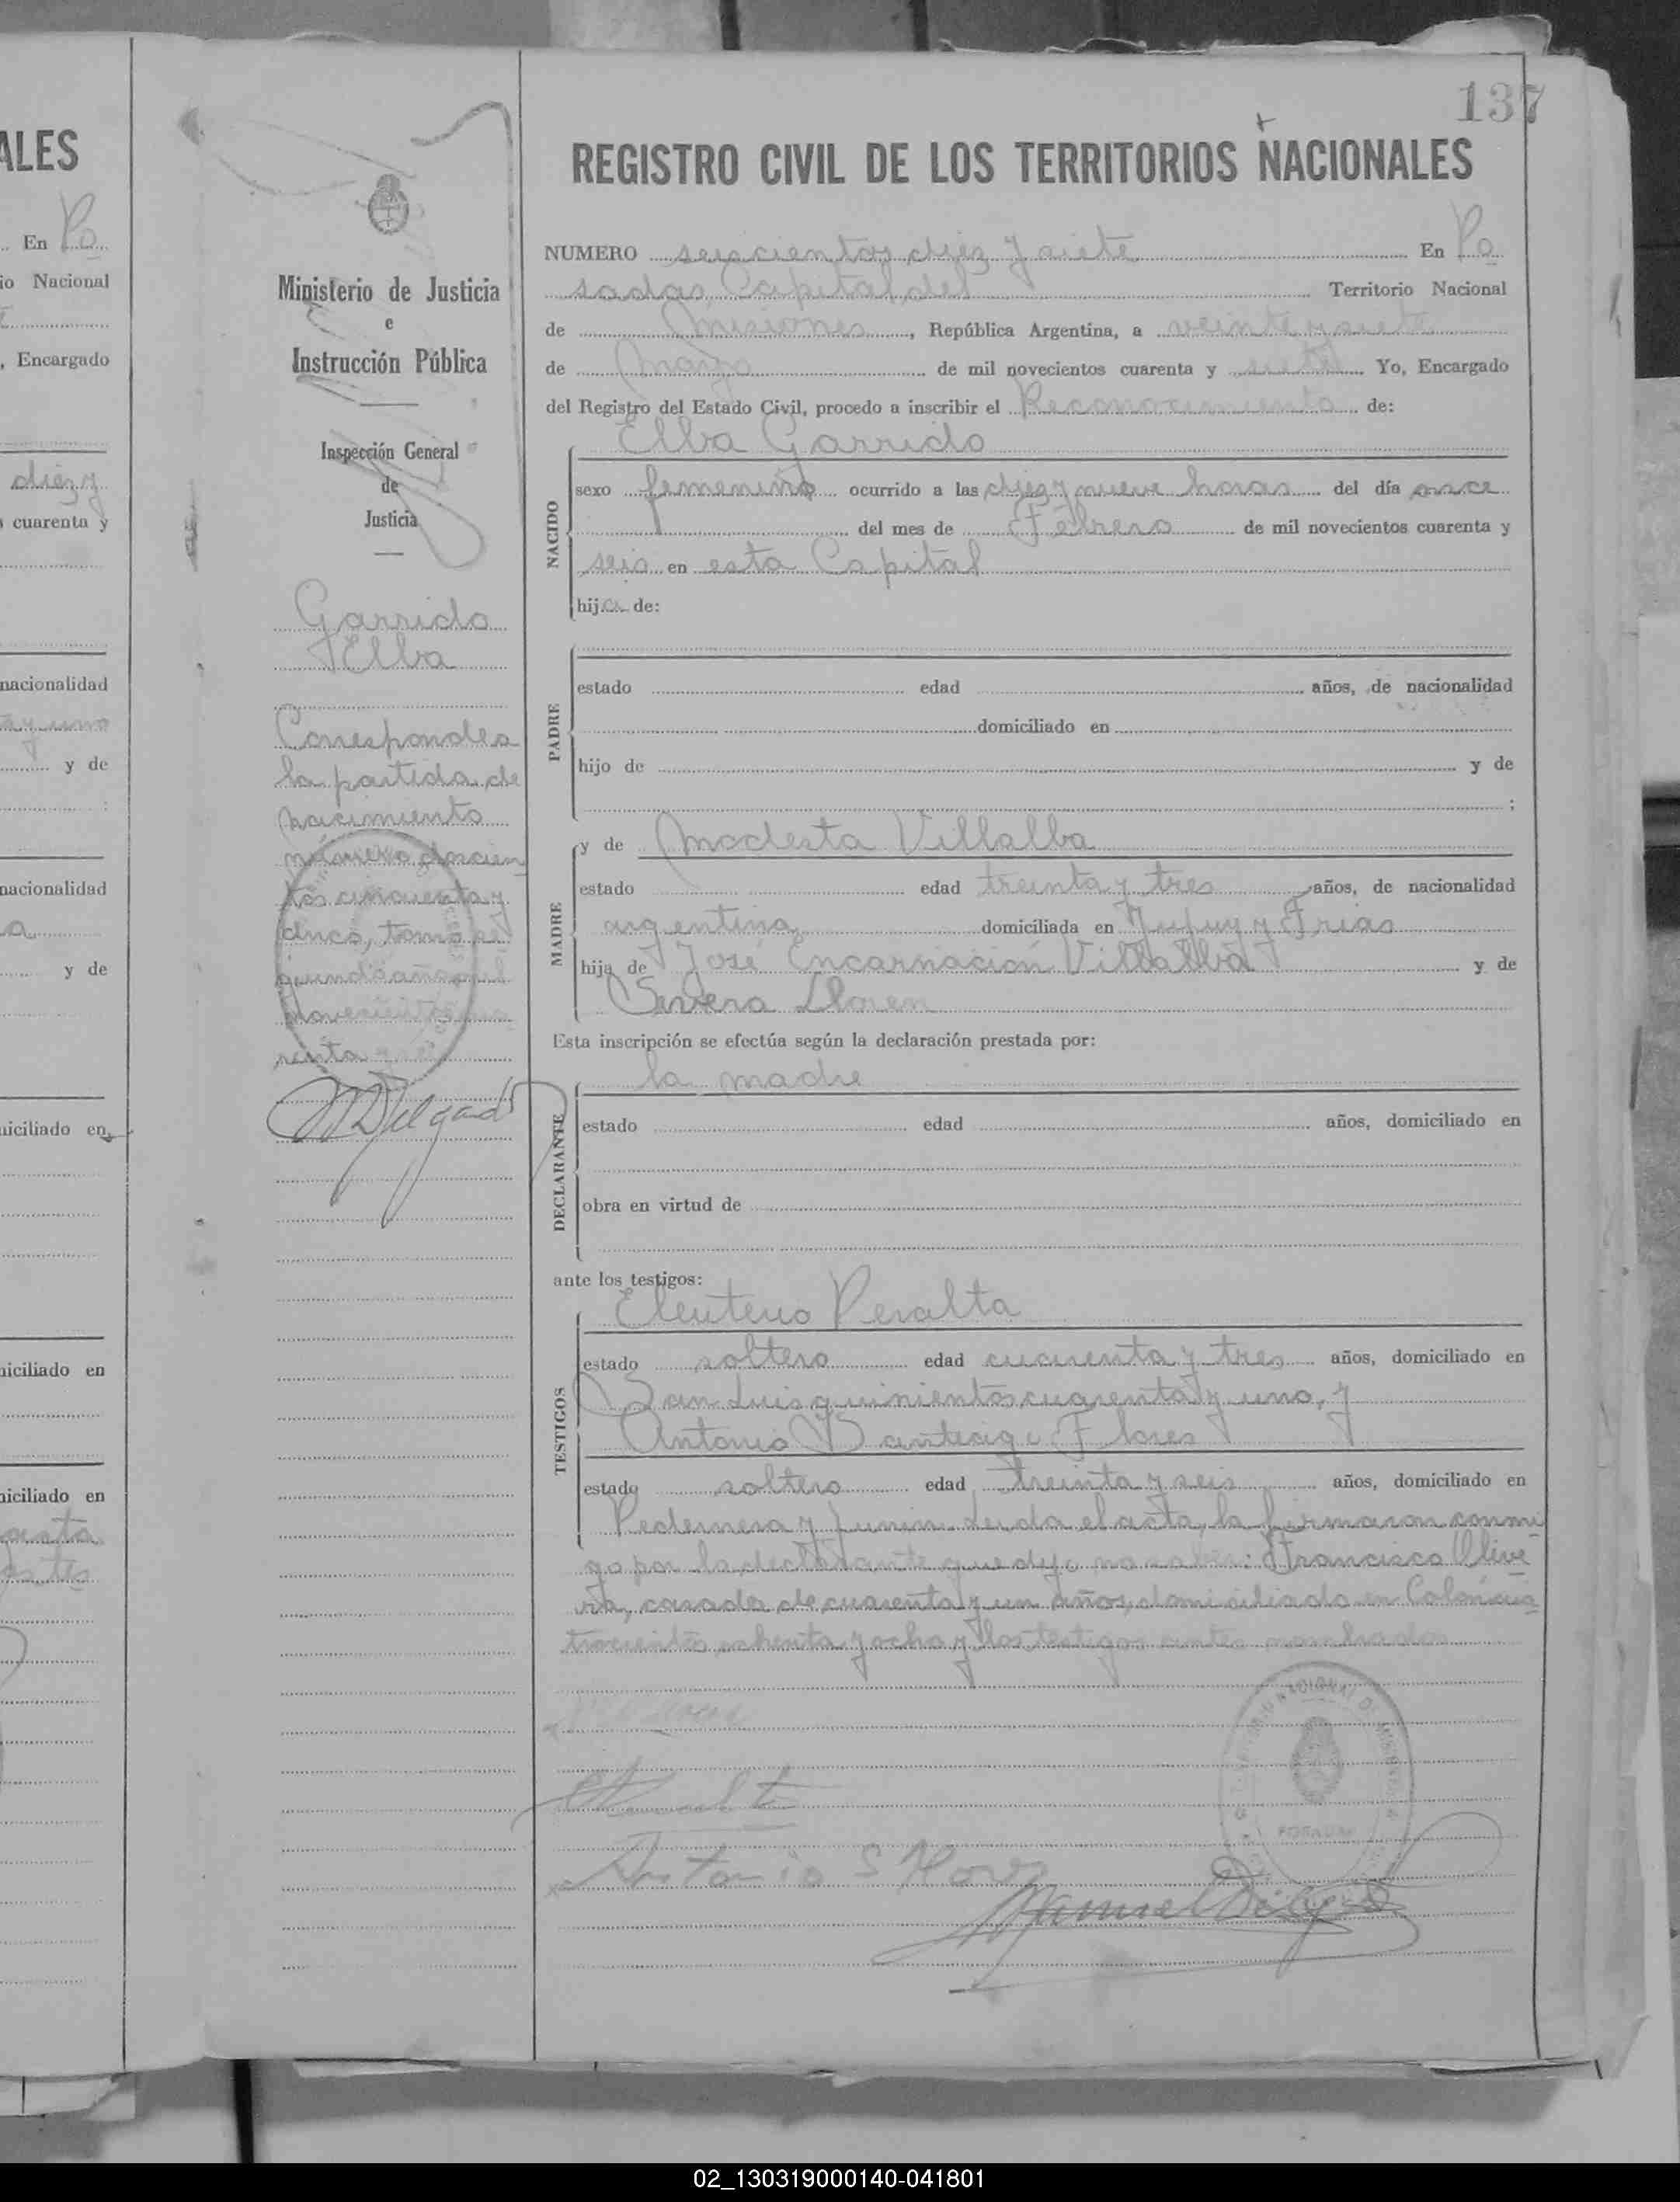 137
REGISTRO CIVIL DE LOS TERRITORIOS NACIONALES
NUMERO seiscientos diez y siete En Po
sadas, Capital del Territorio Nacional
de Misiones, República Argentina, a veinte y siete
de Marzo de mil novecientos cuarenta y siete Yo, Encargado
del Registro del Estado Civil, procedo a inscribir el Reconocimiento de:
Elba Garrido
NACIDO
sexo femenino ocurrido a las diez y nueve horas del día once
del mes de Febrero de mil novecientos cuarenta y
seis en esta Capital
hija de:
PADRE
estado edad años, de nacionalidad
domiciliado en
hijo de y de
;
y de Modesta Villalba
MADRE
estado edad treinta y tres años, de nacionalidad
argentina domiciliada en y Frias
hija de José Encarnación Villalba y de
Severa
Esta inscripción se efectúa según la declaración prestada por:
la madre
DECLARANTE
estado edad años, domiciliado en
obra en virtud de
ante los testigos:
Eleuterio Peralta
TESTIGOS
estado soltero edad cuarenta y tres años, domiciliado en
San Luis quinientos cuarenta y uno, y
Antonio Santiago Flores
estado soltero edad treinta y seis años, domiciliado en
Pedernera y Junin. Leida el acta, la firmaron conmi
go por la declarante que dijo no saber: Francisco Olive
ra, casado de cuarenta y un años, domiciliado en Colón cua
trocientos ochenta y ocho y los testigos antes nombrados
Antonio S Flores
Manuel
Ministerio de Justicia
e
Instrucción Pública
Inspección General
de
Justicia
Garrido
Elba
Corresponde a
la partida de
nacimiento
número doscien
tos cincuenta y
cinco, tomo se
gundo año mil
novecientos cua
renta y seis
MDelgado
ALES
En Po
io Nacional
, Encargado
diez y
s cuarenta y
nacionalidad
y de
:
nacionalidad
a
y de
niciliado en
niciliado en
niciliado en
02_130319000140-041801